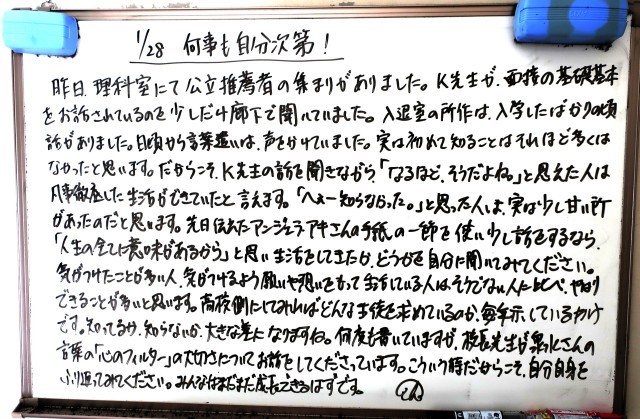 1/28 何事も自分次第!
昨日、理科室にて公立推薦者の集まりがありました。K先生が、面接の基礎基本
をお話されているのを少しだけ廊下で聞いていました。入退室の所作は、入学したばかりの頃
話がありました。日頃から言葉遣いは、声をかけていました。実は初めて知ることはそれほど多くは
なかったと思います。だからこそ、K先生の話を聞きながら、「なるほど、そうだよね。」と思えた人は
凡事徹底した生活ができていたと言えます。「へぇー知らなかった。」と思った人は、実は少し甘い所
があったのだと思います。先日伝えたアンジェラ・アキさんの手紙の一節を使い少し話をするなら、
「人生の全てに意味があるから」と思い生活をしてきたか、どうかを自分に聞いてみてください。
気がつけたことが多い人、気がつけるよう願いや想いをもって生活している人はそうでない人に比べ、やはり
できることが多いと思います。高校側にしてみればどんな生徒を求めているのか、毎年示しているわけ
です。知ってるか、知らないか、大きな差になりますね。何度も書いていますが、校長先生が さんの
言葉の「心のフィルター」の大切さについてお話をしてくださっています。こういう時だからこそ、自分自身を
ふり返ってみてください。みんなはまだまだ成長できるはずです。